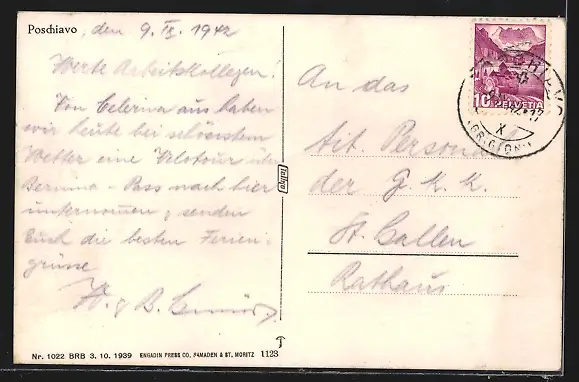 Poschiavo, den 9. IX. 1942
Werte Arbeitskollegen!
Von Celerina aus haben
wir heute bei schönstem
Wetter eine Velotour über
Bernina-Pass nach hier
unternommen & senden
Euch die besten Ferien-
grüsse
H. & B.
An das
Tit. Personal
der G. K. K.
St. Gallen
Rathaus
10 HELVETIA
Nr. 1022 BRB 3. 10. 1939 ENGADIN PRESS CO. SAMADEN & ST. MORITZ 1123